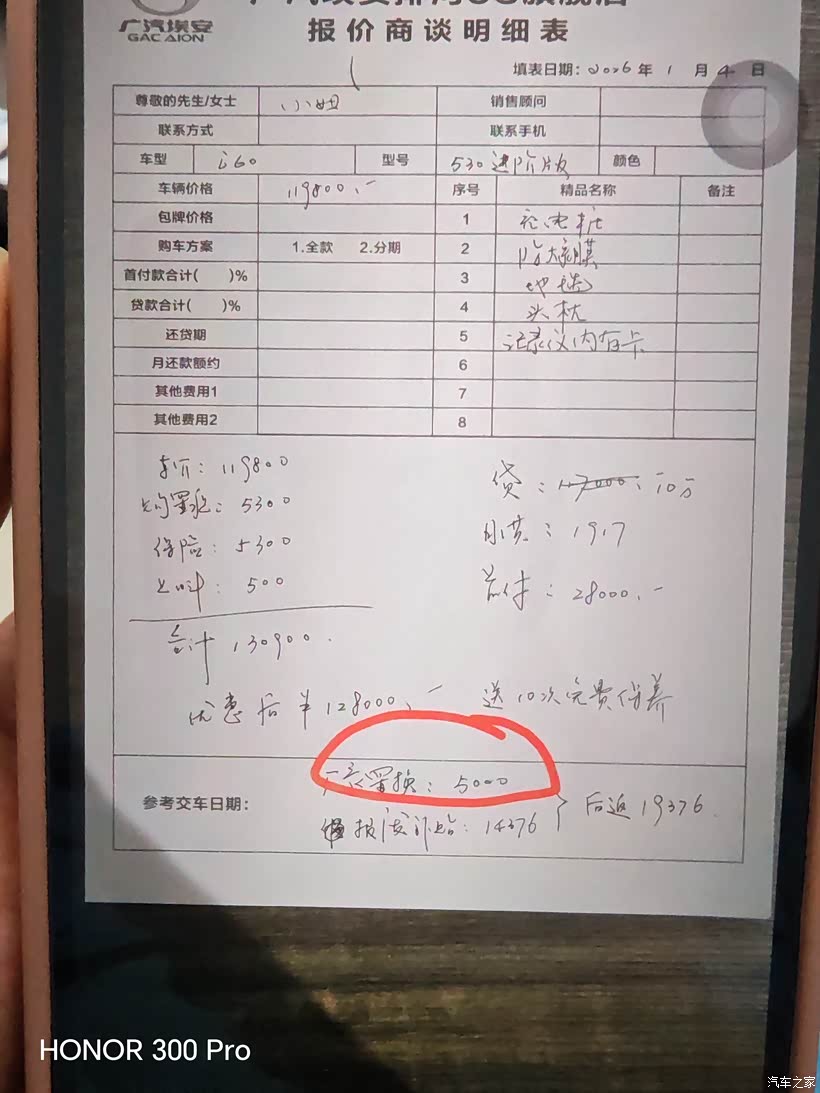 广汽埃安
GAC AION
报价商谈明细表
填表日期：2026年1月4日
尊敬的先生/女士 小姐 销售顾问
联系方式 联系手机
车型 i60 型号 530进阶版 颜色
车辆价格 119800.- 序号 精品名称 备注
包牌价格 1 充电桩
购车方案 1.全款 2.分期 2
首付款合计( )% 3 地毯
贷款合计( )% 4 头枕
还贷期 5 记录仪内存卡
月还款额约 6
其他费用1 7
其他费用2 8
车价：119800 贷：10万
购置税：5300 月供：1917
保险：5300 首付：28000.-
上牌：500
合计 130900.
优惠后¥128000.- 送10次免费保养
厂家置换：5000
参考交车日期： 报废补贴：14376 } 后返19376.
HONOR 300 Pro
汽车之家